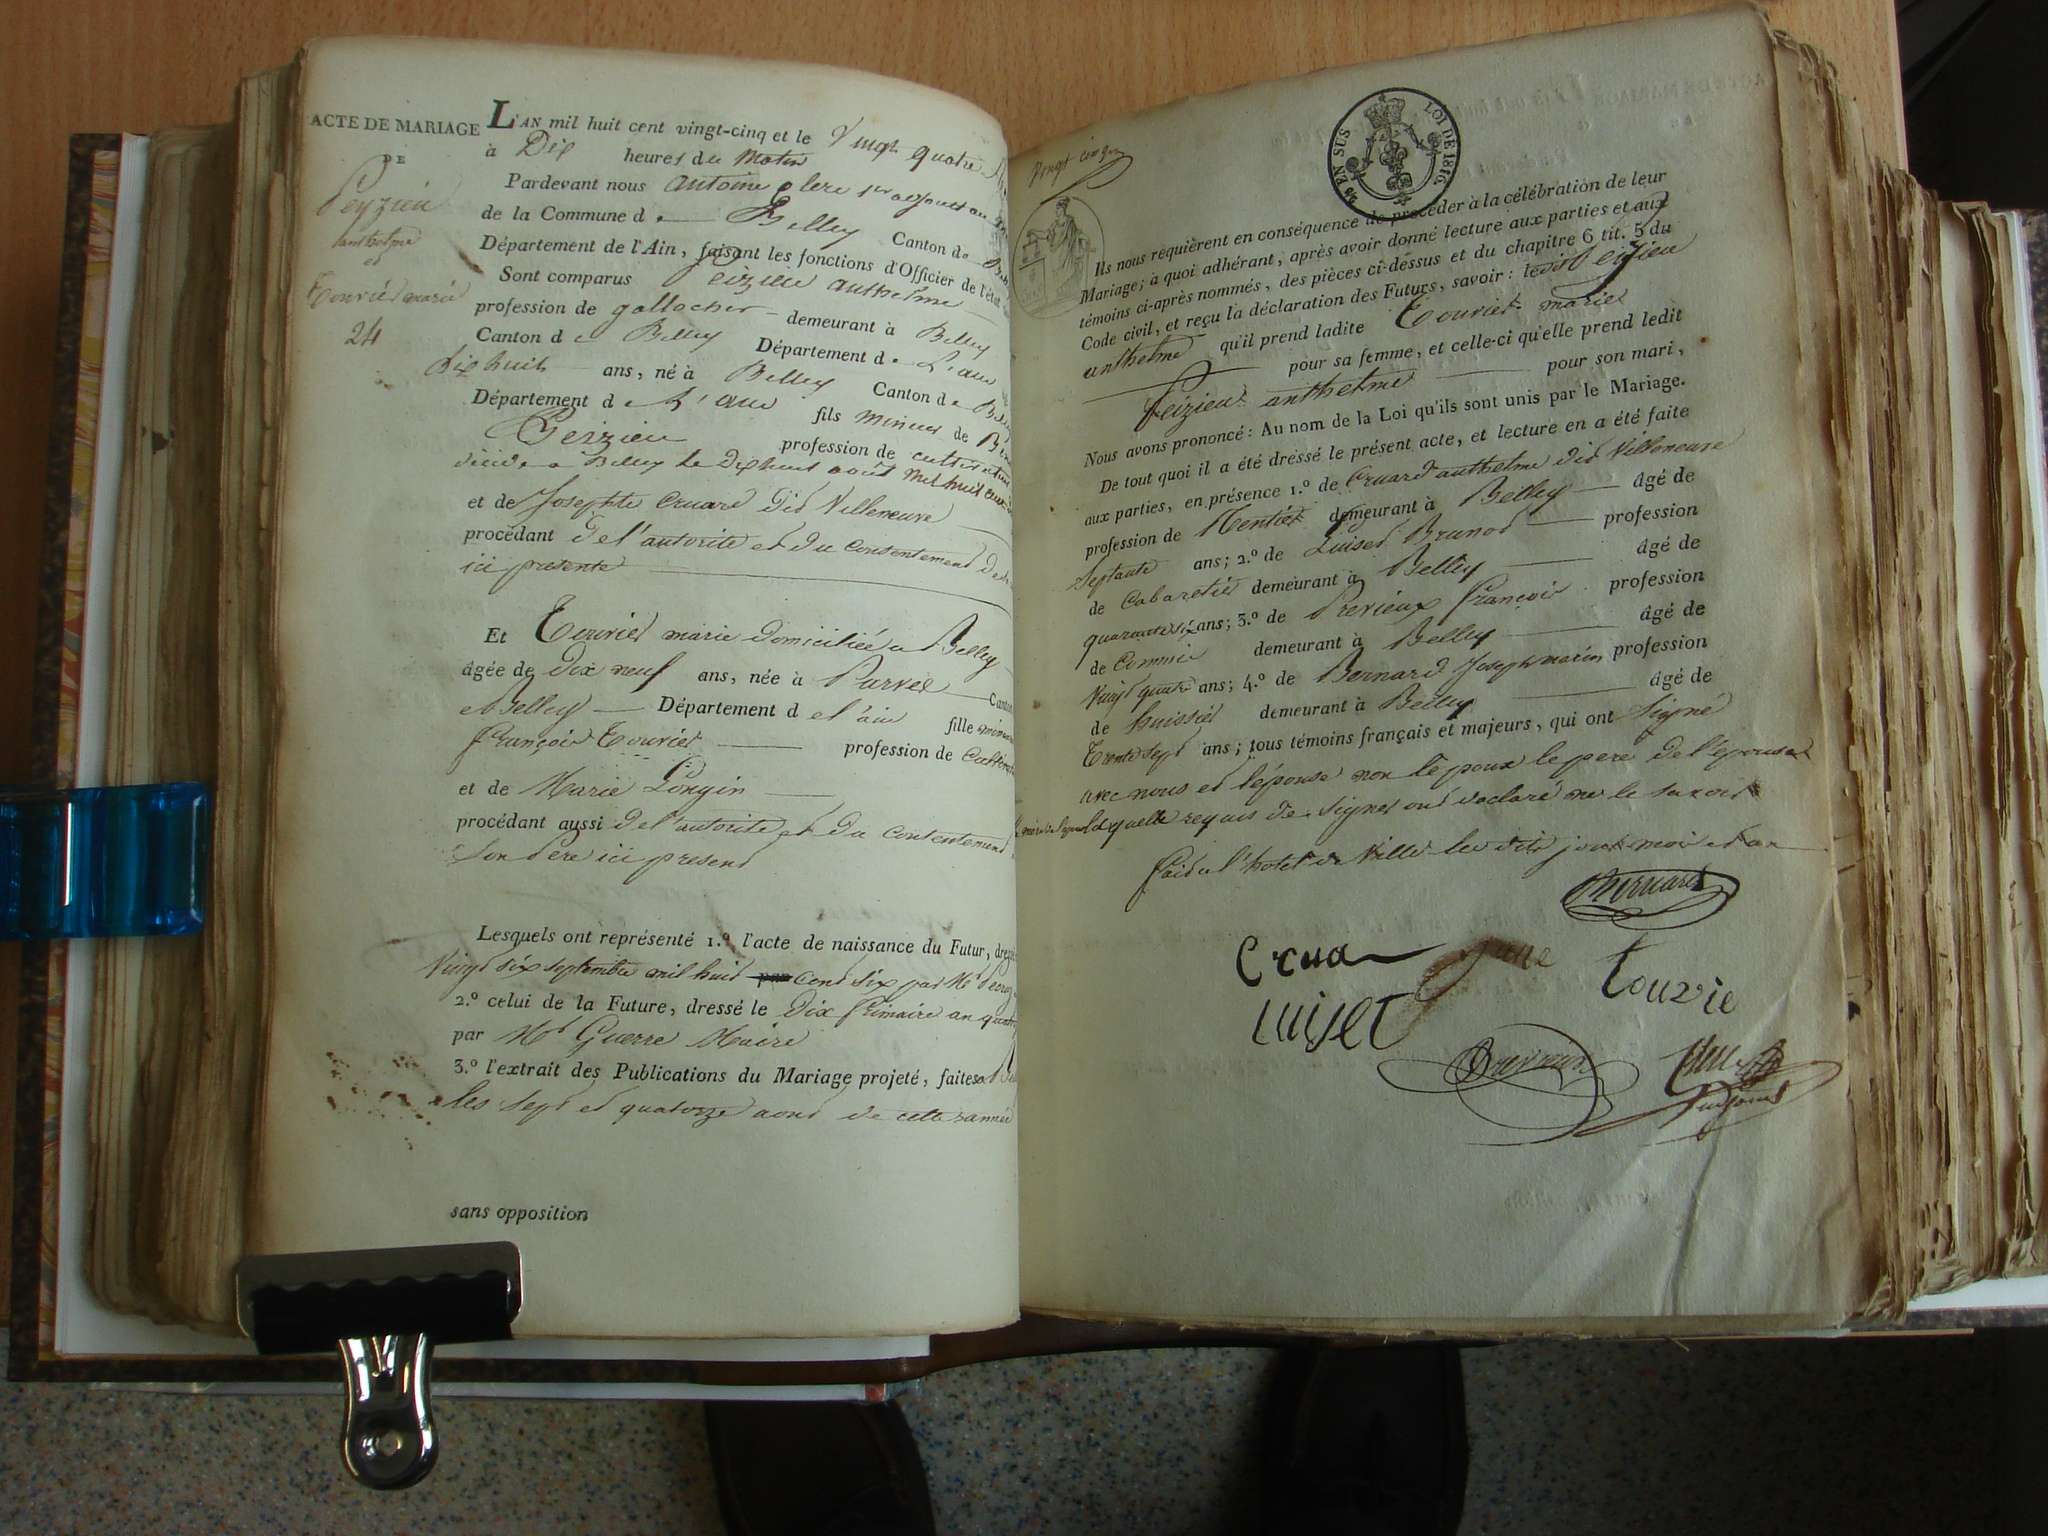 ACTE DE MARIAGE
DE
Peyzieu
anthelme
et
Touvier marie
24
L'AN mil huit cent vingt-cinq et le Vingt quatre
à Dix heures du Matin
Pardevant nous antoine clerc 1er adjoint au
de la Commune de Belley Canton de
Département de l'Ain, faisant les fonctions d'Officier de l'état
Sont comparus Peizieu anthelme
profession de gallocher demeurant à Belley
Canton de Belley Département de L'ain
dix huit ans, né à Belley Canton de
Département de L'ain fils Mineur de
Peizieu profession de cultivateur
décédé a Belley le dix huit août mil huit cent
et de Josephte Cruard dit Villeneuve
procédant de l'autorité et du consentement de
ici presente
Et Touvier marie domiciliée a Belley
âgée de dix neuf ans, née à Parves Canton
de Belley Département de l'ain fille mineure
françois Touvier profession de
et de Marie Longin
procédant aussi de l'autorité et du consentement
son Pere ici present
Lesquels ont représenté 1.º l'acte de naissance du Futur, dressé
Vingt six septembre mil huit cent six par Mr
2.º celui de la Future, dressé le Dix frimaire an
par Mr Guerre Maire
3.º l'extrait des Publications du Mariage projeté, faites
les sept et quatorze aout de cette année
sans opposition
Vingt cinq
EN SUS
LOI DE 1816
Ils nous requièrent en conséquence de procéder à la célébration de leur
Mariage; à quoi adhérant, après avoir donné lecture aux parties et aux
témoins ci-après nommés, des pièces ci-dessus et du chapitre 6 tit. 5 du
Code civil, et reçu la déclaration des Futurs, savoir : ledit Peizieu
anthelme qu'il prend ladite Touvier marie
pour sa femme, et celle-ci qu'elle prend ledit
Peizieu anthelme pour son mari,
Nous avons prononcé : Au nom de la Loi qu'ils sont unis par le Mariage.
De tout quoi il a été dressé le présent acte, et lecture en a été faite
aux parties, en présence 1.º de Cruard anthelme dit Villeneuve
profession de Rentier demeurant à Belley âgé de
septante ans; 2.º de Luiset Brunot profession
de Cabaretier demeurant à Belley âgé de
quarante six ans; 3.º de Prerieux françois profession
de Commis demeurant à Belley âgé de
Vingt quatre ans; 4.º de Bernard Joseph marin profession
de huissier demeurant à Belley âgé de
Trente sept ans; tous témoins français et majeurs, qui ont signé
avec nous et l'épouse non l'epoux le pere de l'épouse et
laquelle requis de signer ont déclaré ne le savoir
fait a l'hotel de Ville les dits jour mois et an
Bernard
Crua
touvie
luiset